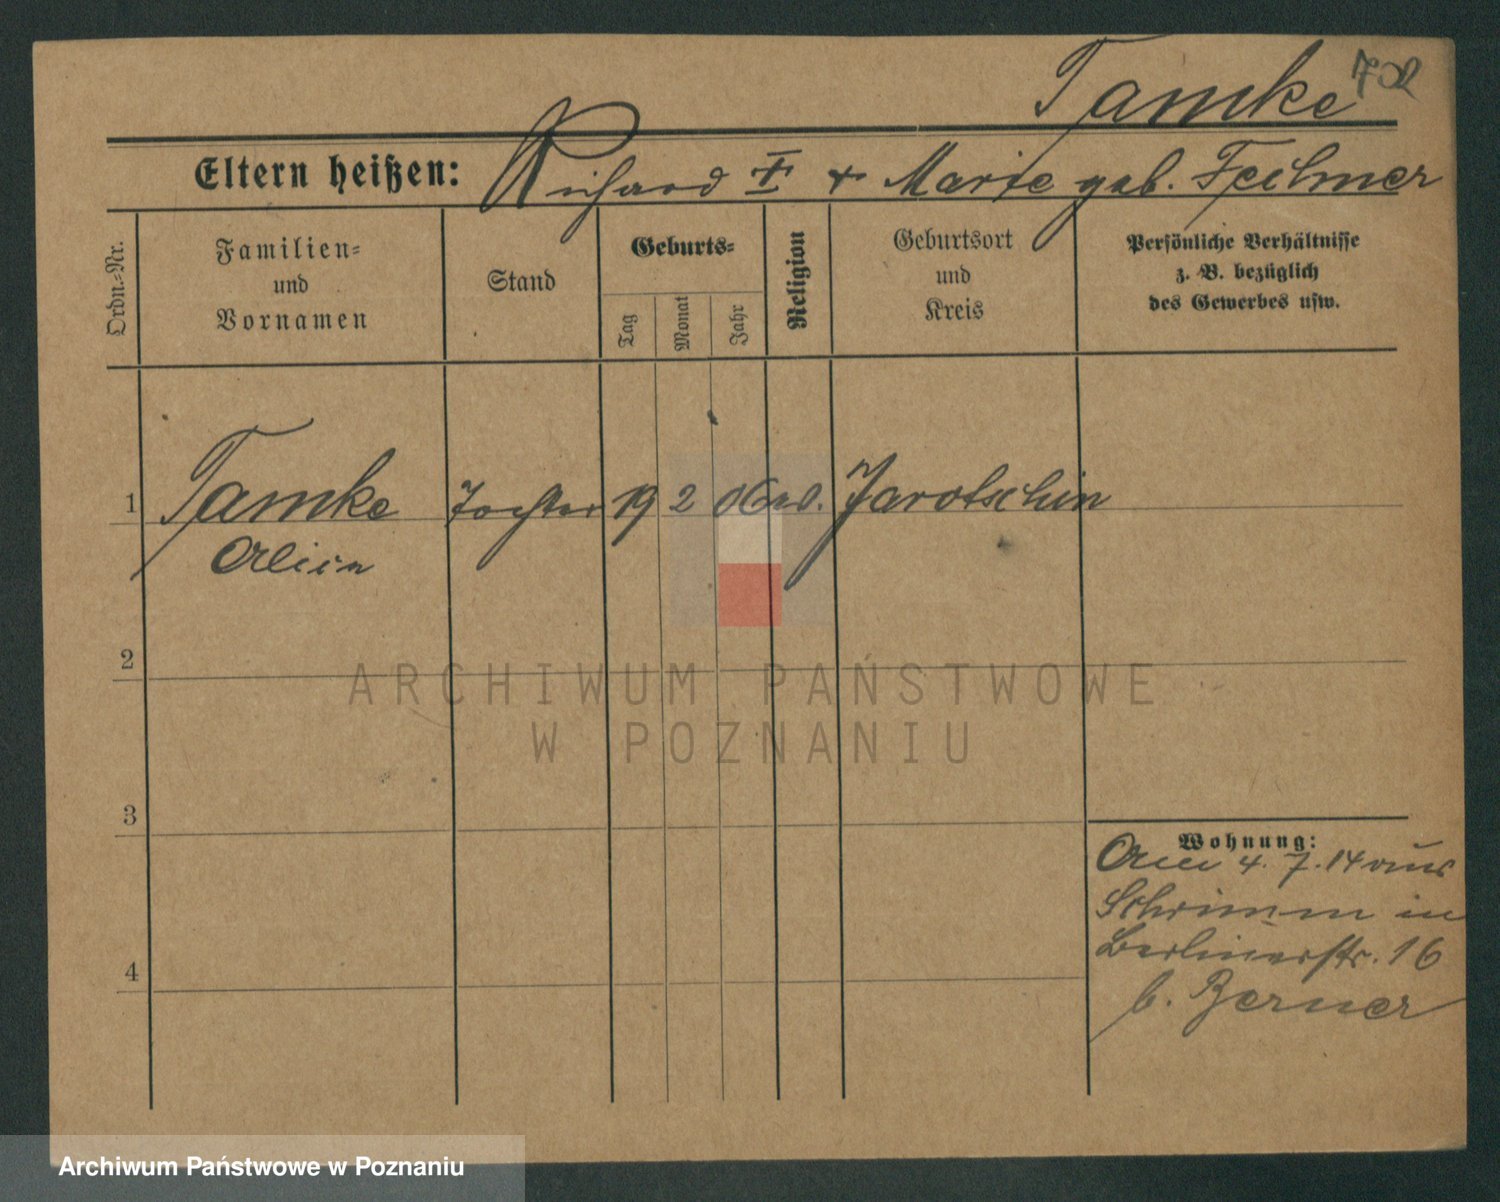 Tamke 702
Eltern heißen: Richard † + Marie geb. Feilmer
Ordn.-Nr.
Familien-
und
Vornamen
Stand
Geburts-
Tag
Monat
Jahr
Religion
Geburtsort
und
Kreis
Persönliche Verhältnisse
z. B. bezüglich
des Gewerbes usw.
1 Tamke Tochter 19 2 06 ev. Jarotschin
2
3
4
Wohnung:
4. 7. 14 aus
Schrimm in
Berlinerstr. 16
b. Berner
ARCHIWUM PAŃSTWOWE
W POZNANIU
Archiwum Państwowe w Poznaniu